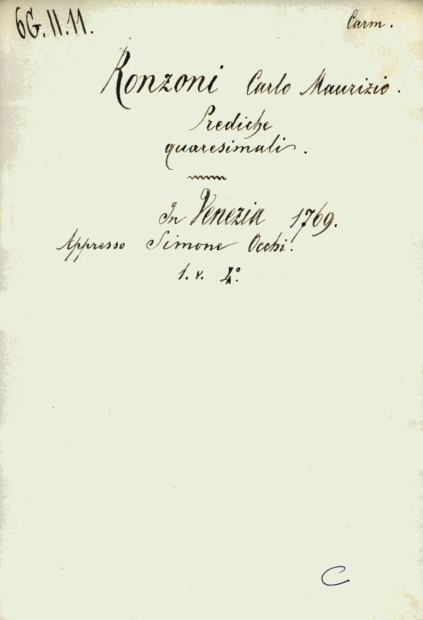 6G.II.11.
Carm.
Ronzoni Carlo Maurizio.
Prediche
quaresimali.
In Venezia 1769.
Appresso Simone Occhi.
1. v. 4.°
C